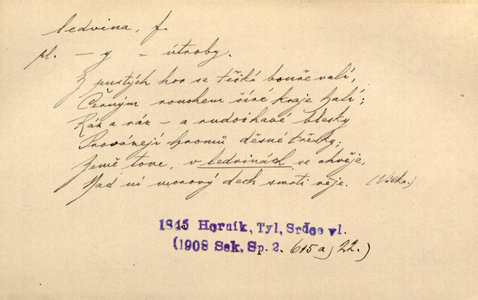 ledvina, f.
pl. – y = útroby.
Z pustých hor se těžká bouře valí,
Černým rouchem širé kraje halí;
Ráz a ráz – a rudožhavé blesky
Provázejí hromů děsné třesky;
Země tone, v ledvinách se chvěje,
Nad ní morový dech smrti věje.
1845 Horník, Tyl, Srdce vl.
(1908 Seb. Sp. 2. 615a, 22.)